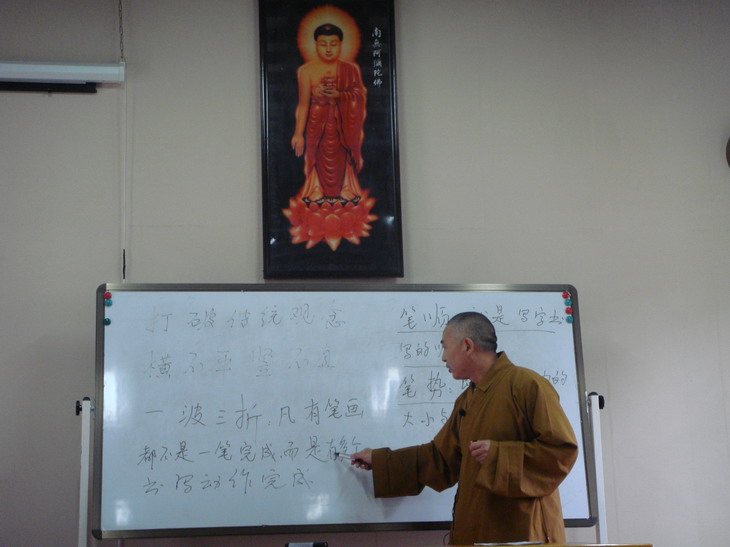 南無阿彌陀佛
打破传统观念
横不平竖不直
一波三折,凡有笔画
都不是一笔完成,而是
书写动作完成
笔顺 是写字书
写的
笔势: 的
大小